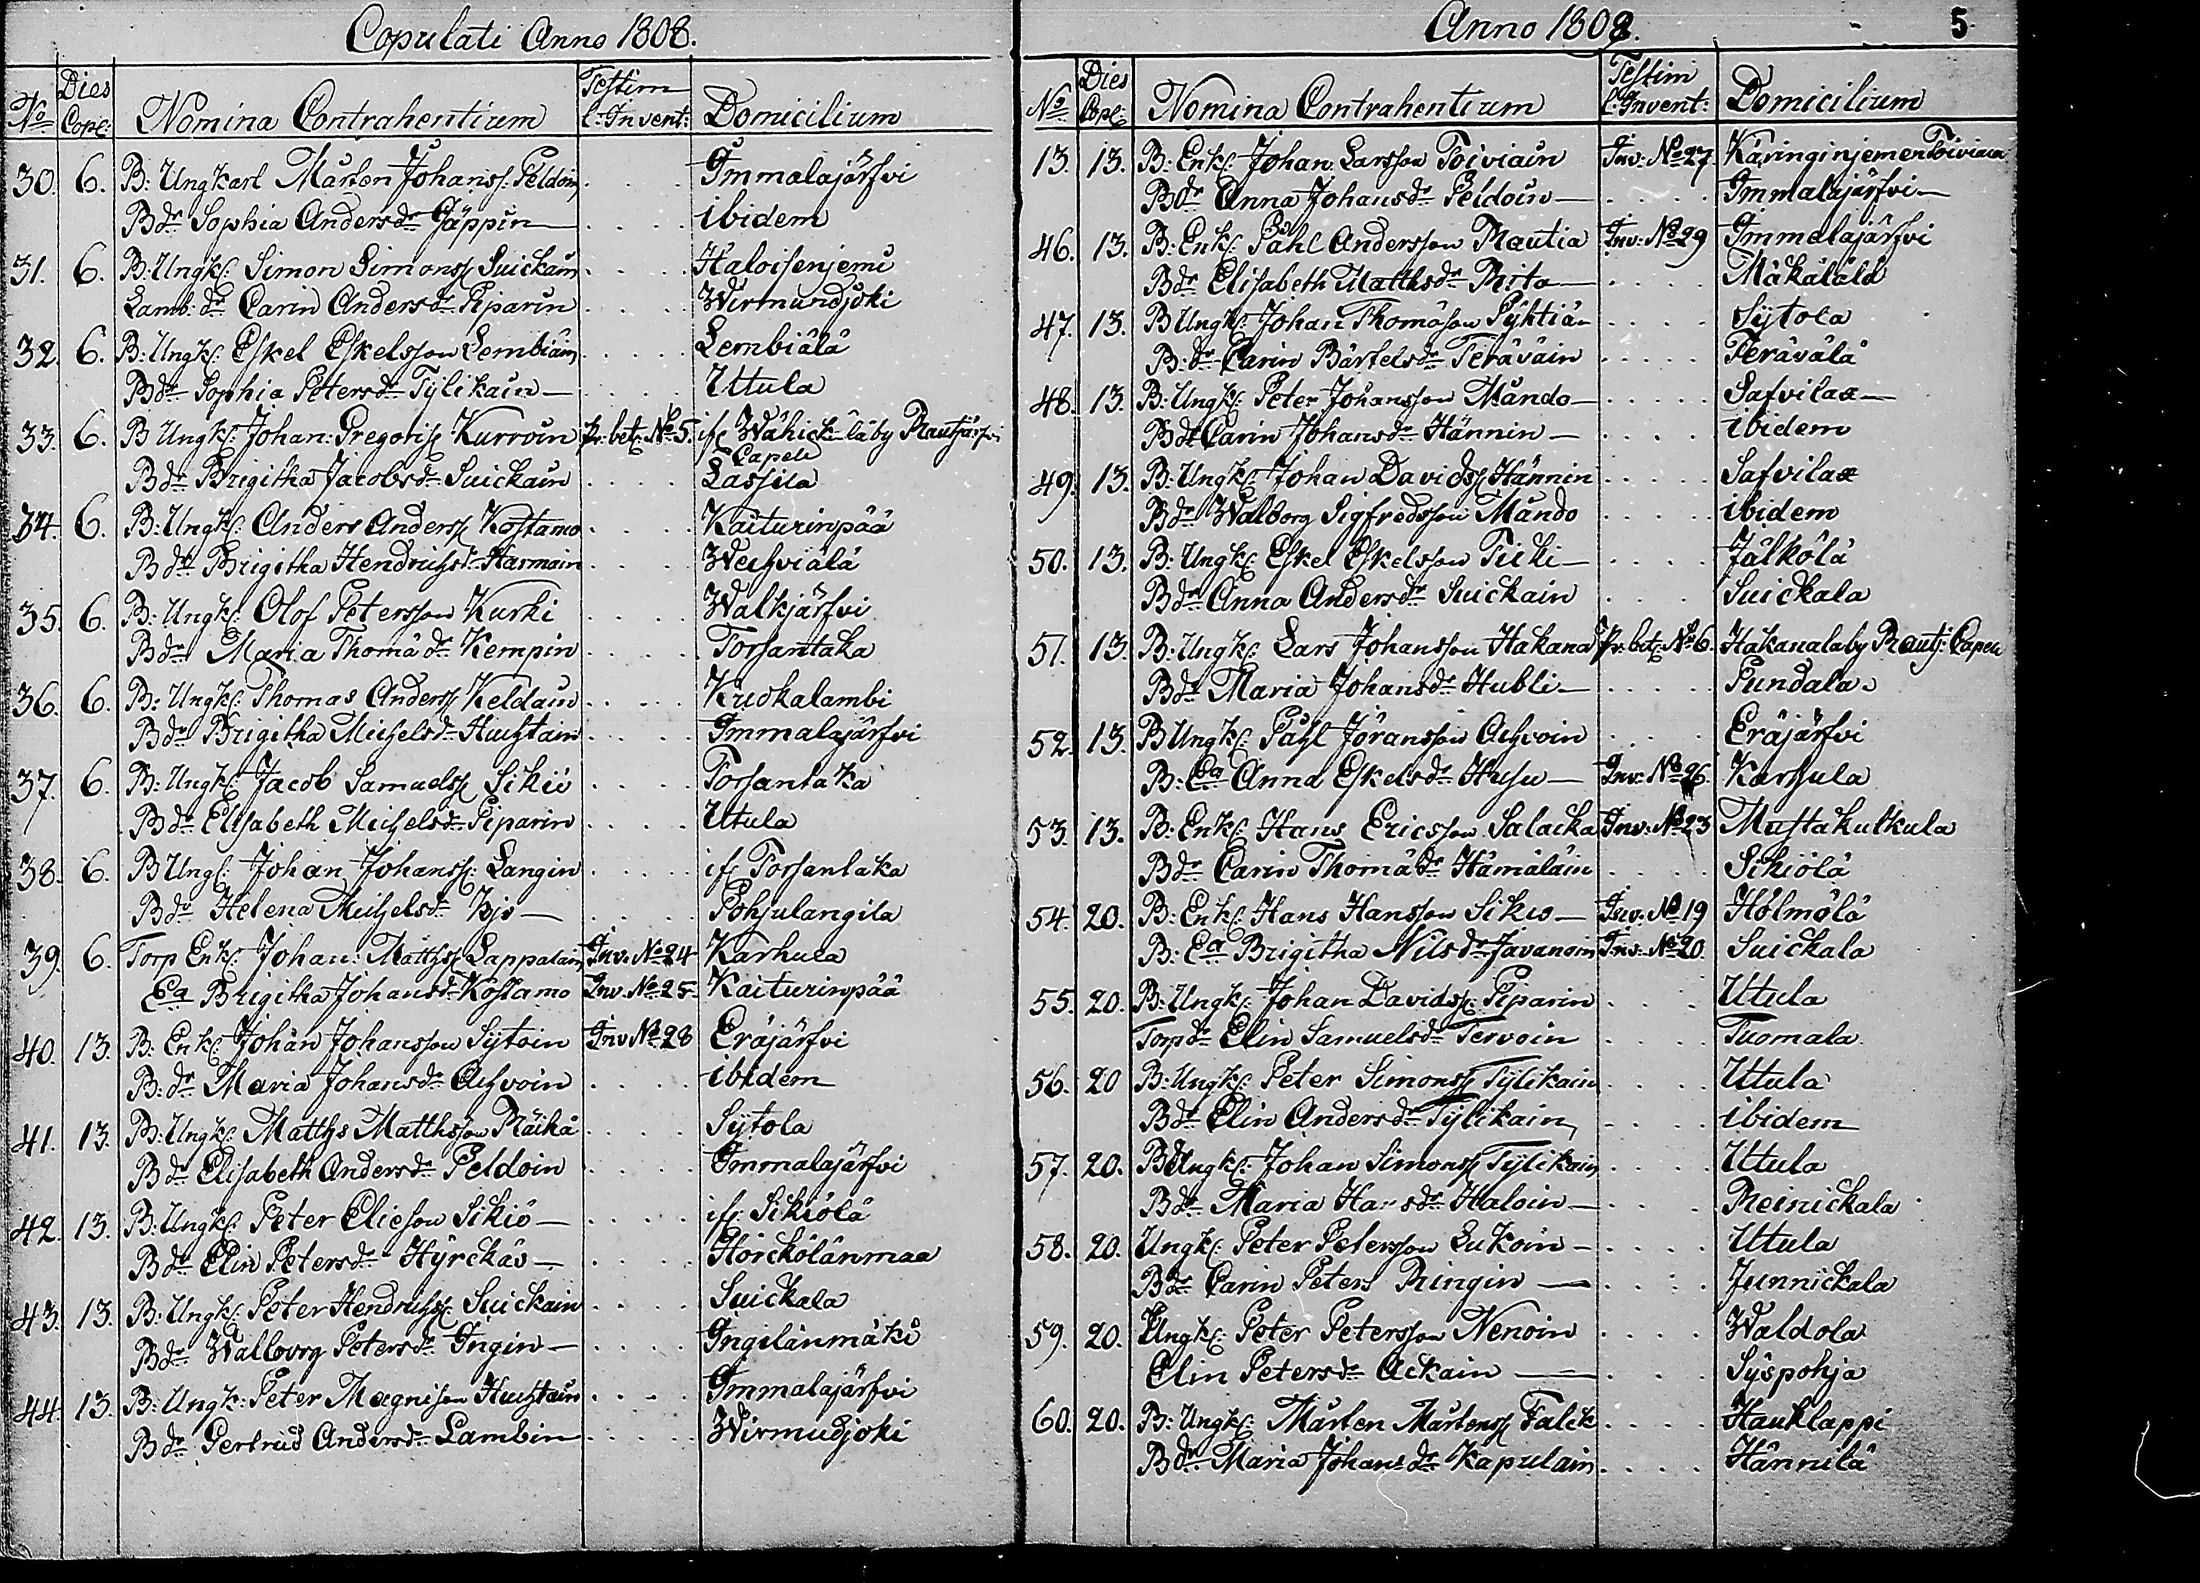 Copulati Anno 1808.
No Dies Copl: Nomina Contrahentium Testim l: Invent: Domicilium
30. 6. B: Ungkarl Mårten Johanss: Peldoin Immalajärfvi
B dr Sophia Anders dr Gäppin ibidem
31. 6. B: Ungk: Simon Simonss Suickain Haloisenjemi
Lamb: dr Carin Anders dr Piparin Wirmundjoki
32. 6. B: Ungk: Eskel Eskelsson Lembiäin Lembiälä
B dr Sophia Peters dr Tylikain Uttula
33. 6. B Ungk: Johan Gregoriss Kurroin Pr: bet: No 5. if: Wähickäläby Rautjärfvi Capell
B dr Brigitha Jacobs dr Suickain Lassila
34. 6. B: Ungk: Anders Anderss Kostamo Kaiturinpää
B dr Brigitha Hendrichs dr Harmoin Wechviälä
35. 6. B: Ungk: Olof Petersson Kurki Walkjärfvi
B dr Maria Thomä dr Kempin Torsantaka
36. 6. B: Ungk: Thomas Anderss Keldain Kuokalambi
B dr Brigitha Michels dr Huchtain Immalajärfvi
37. 6. B: Ungk: Jacob Samuelss Sikiö Torsantaka
B dr Elisabeth Michels dr Piparin Uttula
38. 6. B Ungk: Johan Johanss: Langin if: Torsantaka
B dr Helena Michels dr Pohjulangila
39. 6. Torp Enk: Johan: Mattss Lappalain Inv. No 24 Karhula
Ea Brigitha Johans dr Kostamo Inv. No 25 Kaiturinpää
40. 13. B: Enk: Johan Johansson Sytoin Inv No 28 Eräjärfvi
B: dr Maria Johans dr Achvoin ibidem
41. 13. B: Ungk: Matths Matthsson Räikä Sytola
B dr Elisabeth Anders dr Peldoin Immalajärfvi
42. 13. B: Ungk: Peter Elieson Sikiö if: Sikiölä
B dr Elin Peters dr Hyrckäs Hörckölänmaa
43. 13. B: Ungk: Peter Hendrichss: Suickain Suickala
B dr Wallborg Peters dr Ingin Ingilänmäki
44. 13. B: Ungk: Peter Magnison Huchtain Immalajärfvi
B dr Gertrud Anders dr Lambin Wirmudjoki
Anno 1808. 5
No Dies Copl: Nomina Contrahentium Testim l: Invent: Domicilium
13. 13. B: Enk: Johan Larsson Toiviain Inv: No 27. Käringinjemen Toiviala
B dr Anna Johans dr Peldoin Immalajärfvi
46. 13. B: Enk: Påhl Andersson Rautia Inv: No 29 Immalajärfvi
B dr Elisabeth Matths dr Rita Mäkälälä
47. 13. B Ungk: Johan Thomäson Pyhtiä Sytola
B: dr Carin Bärtels dr Teräväin Terävälä
48. 13. B: Ungk: Peter Johansson Mändo Safvilax
B dr Carin Johans dr Hännin ibidem
49. 13. B: Ungk: Johan Davidss Hännin Safvilax
B dr Walborg Sigfredsson Mändo ibidem
50. 13. B: Ungk: Eskel Eskelsson Ticki Jälkölä
B dr Anna Anders dr Suickain Suickala
51. 13. B: Ungk: Lars Johansson Hakana Pr: bet: No 6. Hakanalaby Rautj: Capell
B dr Maria Johans dr Hubli Pundala
52. 13. B Ungk: Påhl Jöransson Achvoin Eräjärfvi
B: Ea Anna Eskels dr Husu Inv: No 26. Karhula
53. 13. B: Enk: Hans Ericsson Salacka Inv: No 23 Mustakulkula
B dr Carin Thomä dr Hämäläin Sikiölä
54. 20. B: Enk: Hans Hansson Sikiö Inv. No 19 Hölmölä
B: Ea Brigitha Nils dr Javanoin Inv: No 20. Suickala
55. 20. B: Ungk: Johan Davidss: Piparin Uttula
Torp dr Elin Samuels dr Tervoin Tuomala
56. 20 B: Ungk: Peter Simonss Tylikain Uttula
B dr Elin Anders dr Tylikain ibidem
57. 20. B Ungk: Johan Simonss Tylikain Uttula
B dr Maria Hans dr Haloin Reinickala
58. 20. Ungk: Peter Petersson Lukoin Uttula
B dr Carin Peters Ringin Junnickala
59. 20. Ungk: Peter Petersson Nenoin Waldola
Elin Peters dr Ackain Syspohja
60. 20. B: Ungk: Mårten Mårtenss Falck Hauklappi
B dr Maria Johans dr Kapulain Hännilä